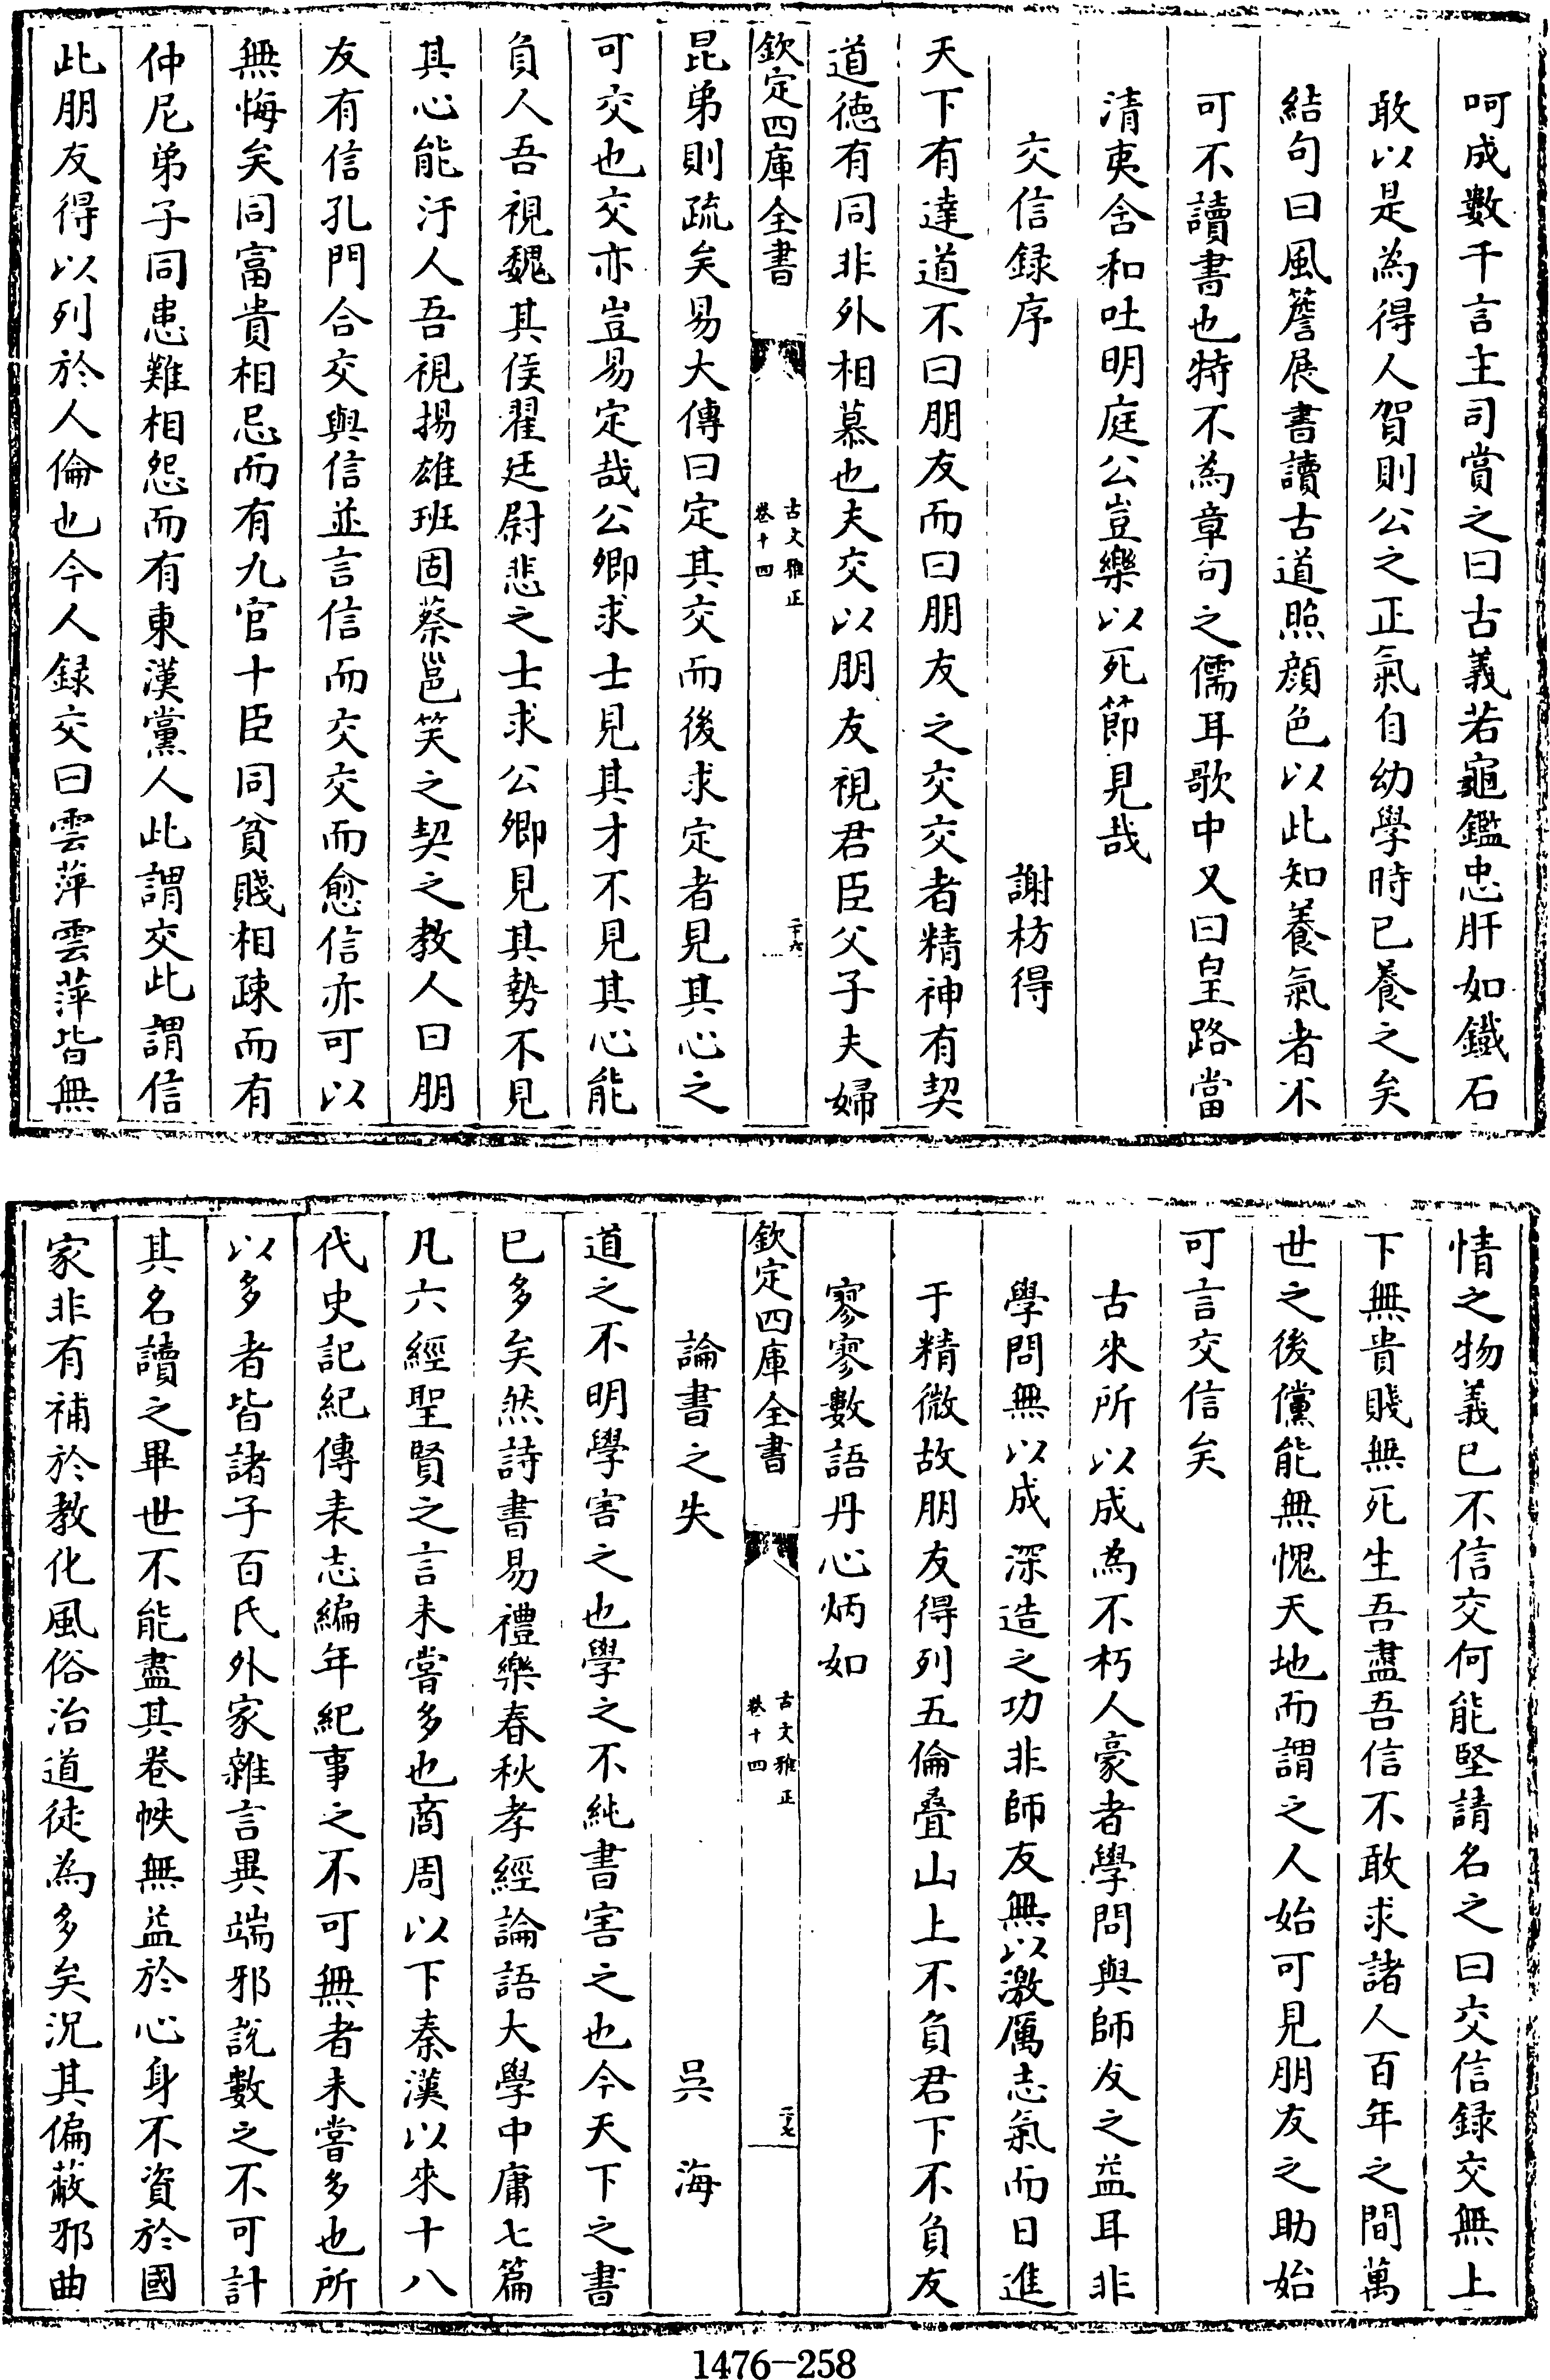 呵成數千言主司賞之曰古義若龜鑑忠肝如鐵石
敢以是為得人賀則公之正氣自幼學時已養之矣
結句曰風簷展書讀古道照顔色以此知養氣者不
可不讀書也特不為章句之儒耳歌中又曰皇路當
清夷含和吐明庭公豈樂以死節見哉
交信録序 謝枋得
天下有達道不曰朋友而曰朋友之交交者精神有契
道德有同非外相慕也夫交以朋友視君臣父子夫婦
欽定四庫全書 古文雅正 卷十四 二十六
昆弟則疏矣易大傳曰定其交而後求定者見其心之
可交也交亦豈易定哉公卿求士見其才不見其心能
負人吾視魏其侯翟廷尉悲之士求公卿見其勢不見
其心能汙人吾視揚雄班固蔡邕笑之契之教人曰朋
友有信孔門合交與信並言信而交交而愈信亦可以
無悔矣同富貴相忌而有九官十臣同貧賤相疎而有
仲尼弟子同患難相怨而有東漢黨人此謂交此謂信
此朋友得以列於人倫也今人録交曰雲萍雲萍皆無
情之物義已不信交何能堅請名之曰交信録交無上
下無貴賤無死生吾盡吾信不敢求諸人百年之間萬
世之後儻能無愧天地而謂之人始可見朋友之助始
可言交信矣
古來所以成為不朽人豪者學問與師友之益耳非
學問無以成深造之功非師友無以激厲志氣而日進
于精微故朋友得列五倫叠山上不負君下不負友
寥寥數語丹心炳如
欽定四庫全書 古文雅正 卷十四 二十七
論書之失 吳海
道之不明學害之也學之不純書害之也今天下之書
已多矣然詩書易禮樂春秋孝經論語大學中庸七篇
凡六經聖賢之言未嘗多也商周以下秦漢以來十八
代史記紀傳表志編年紀事之不可無者未嘗多也所
以多者皆諸子百氏外家雜言異端邪說數之不可計
其名讀之畢世不能盡其卷帙無益於心身不資於國
家非有補於教化風俗治道徒為多矣況其偏蔽邪曲
1476-258